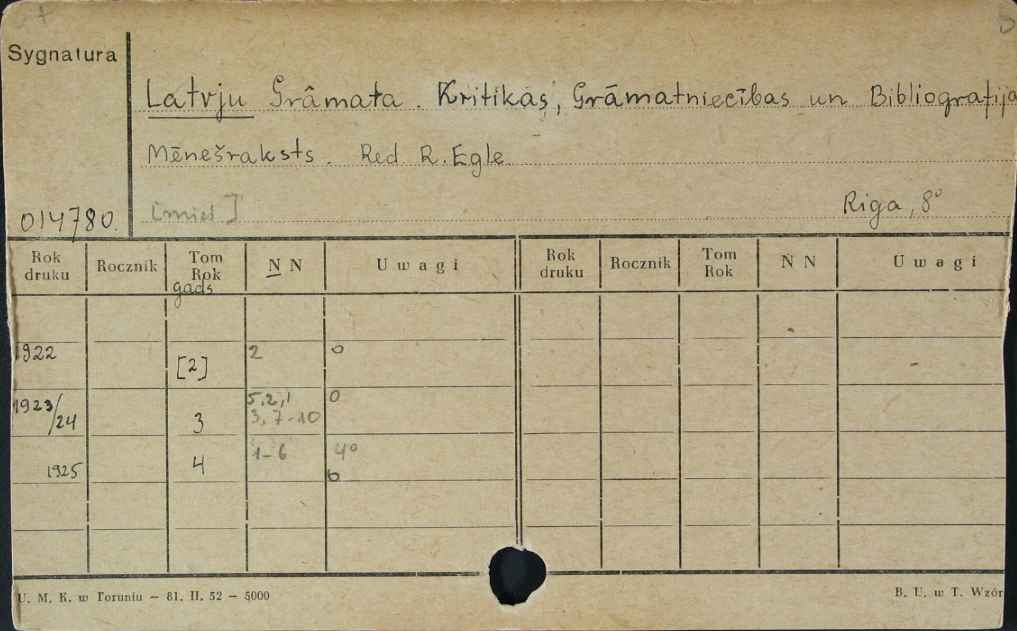 Sygnatura
Latvju Grâmata. Kritikas, Grāmatniecības un Bibliografija
Mēnešraksts. Red R. Egle
014780. [mies] Riga, 8°
Rok druku Rocznik Tom Rok gads N N Uwagi Rok druku Rocznik Tom Rok N N Uwagi
1922 [2] 2 0
1923/24 3 5,2,1 3,7-10 0
1925 4 1-6 4° 6
U. M. K. w Toruniu — 81. II. 52 — 5000 B. U. w T. Wzór